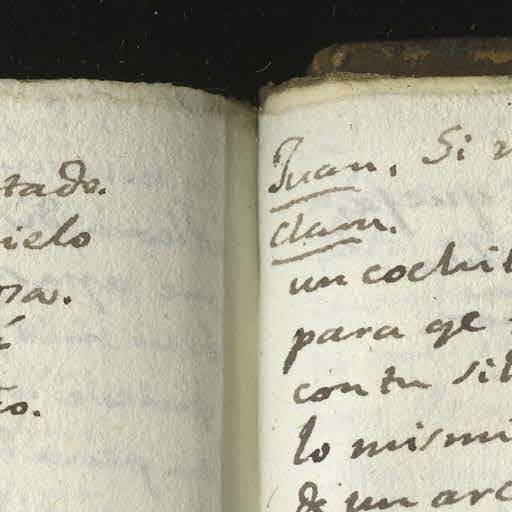 tado.
ielo
ma.
to.
Juan. Si
clam.
un cochit
para qe
con tu sil
lo mismi
de un arc